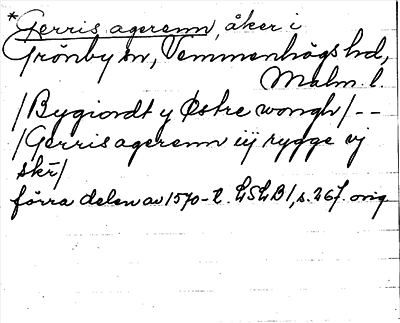 *Gerris agerenn, åker i
Grönby sn, Vemmenhögs hd,
Malm. l.
/Bygiordt y Østre wongh/--
/Gerris agerenn iij rygge vj
skr/
förra delen av 1570-t. LSLB1, s. 267. orig